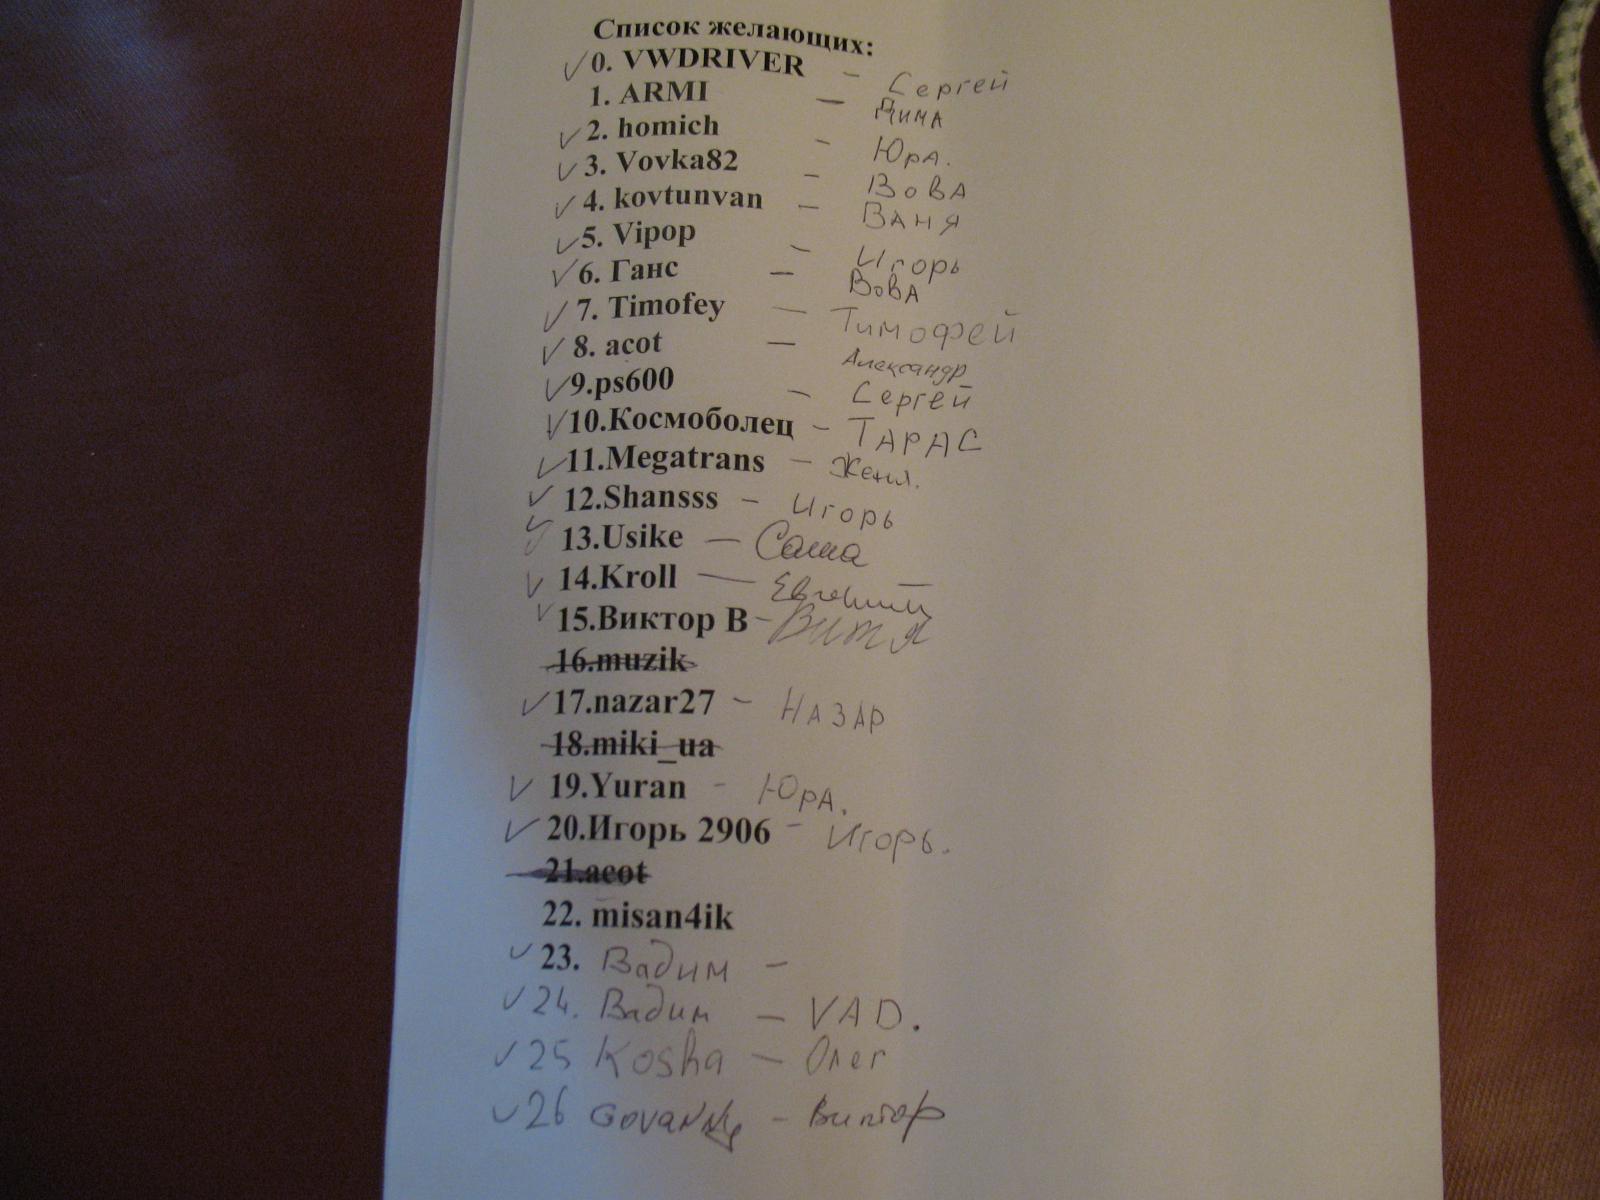 Список желающих:
✓ 0. VWDRIVER — Сергей
1. ARMI — Дима
✓ 2. homich — Юра.
✓ 3. Vovka82 — Вова
✓ 4. kovtunvan — Ваня
✓ 5. Vipop — Игорь
✓ 6. Ганс — Вова
✓ 7. Timofey — Тимофей
✓ 8. acot — Александр
✓ 9.ps600 — Сергей
✓ 10.Космоболец — ТАРАС
✓ 11.Megatrans — Женя.
✓ 12.Shansss — Игорь
✓ 13.Usike — Саша
✓ 14.Kroll — Евгений
✓ 15.Виктор В — Витя
16.muzik
✓ 17.nazar27 — НАЗАР
18.miki_ua
✓ 19.Yuran — Юра.
✓ 20.Игорь 2906 — Игорь.
21.acot
22. misan4ik
✓ 23. Вадим —
✓ 24. Вадим — VAD.
✓ 25 Kosha — Олег
✓ 26 — Виктор